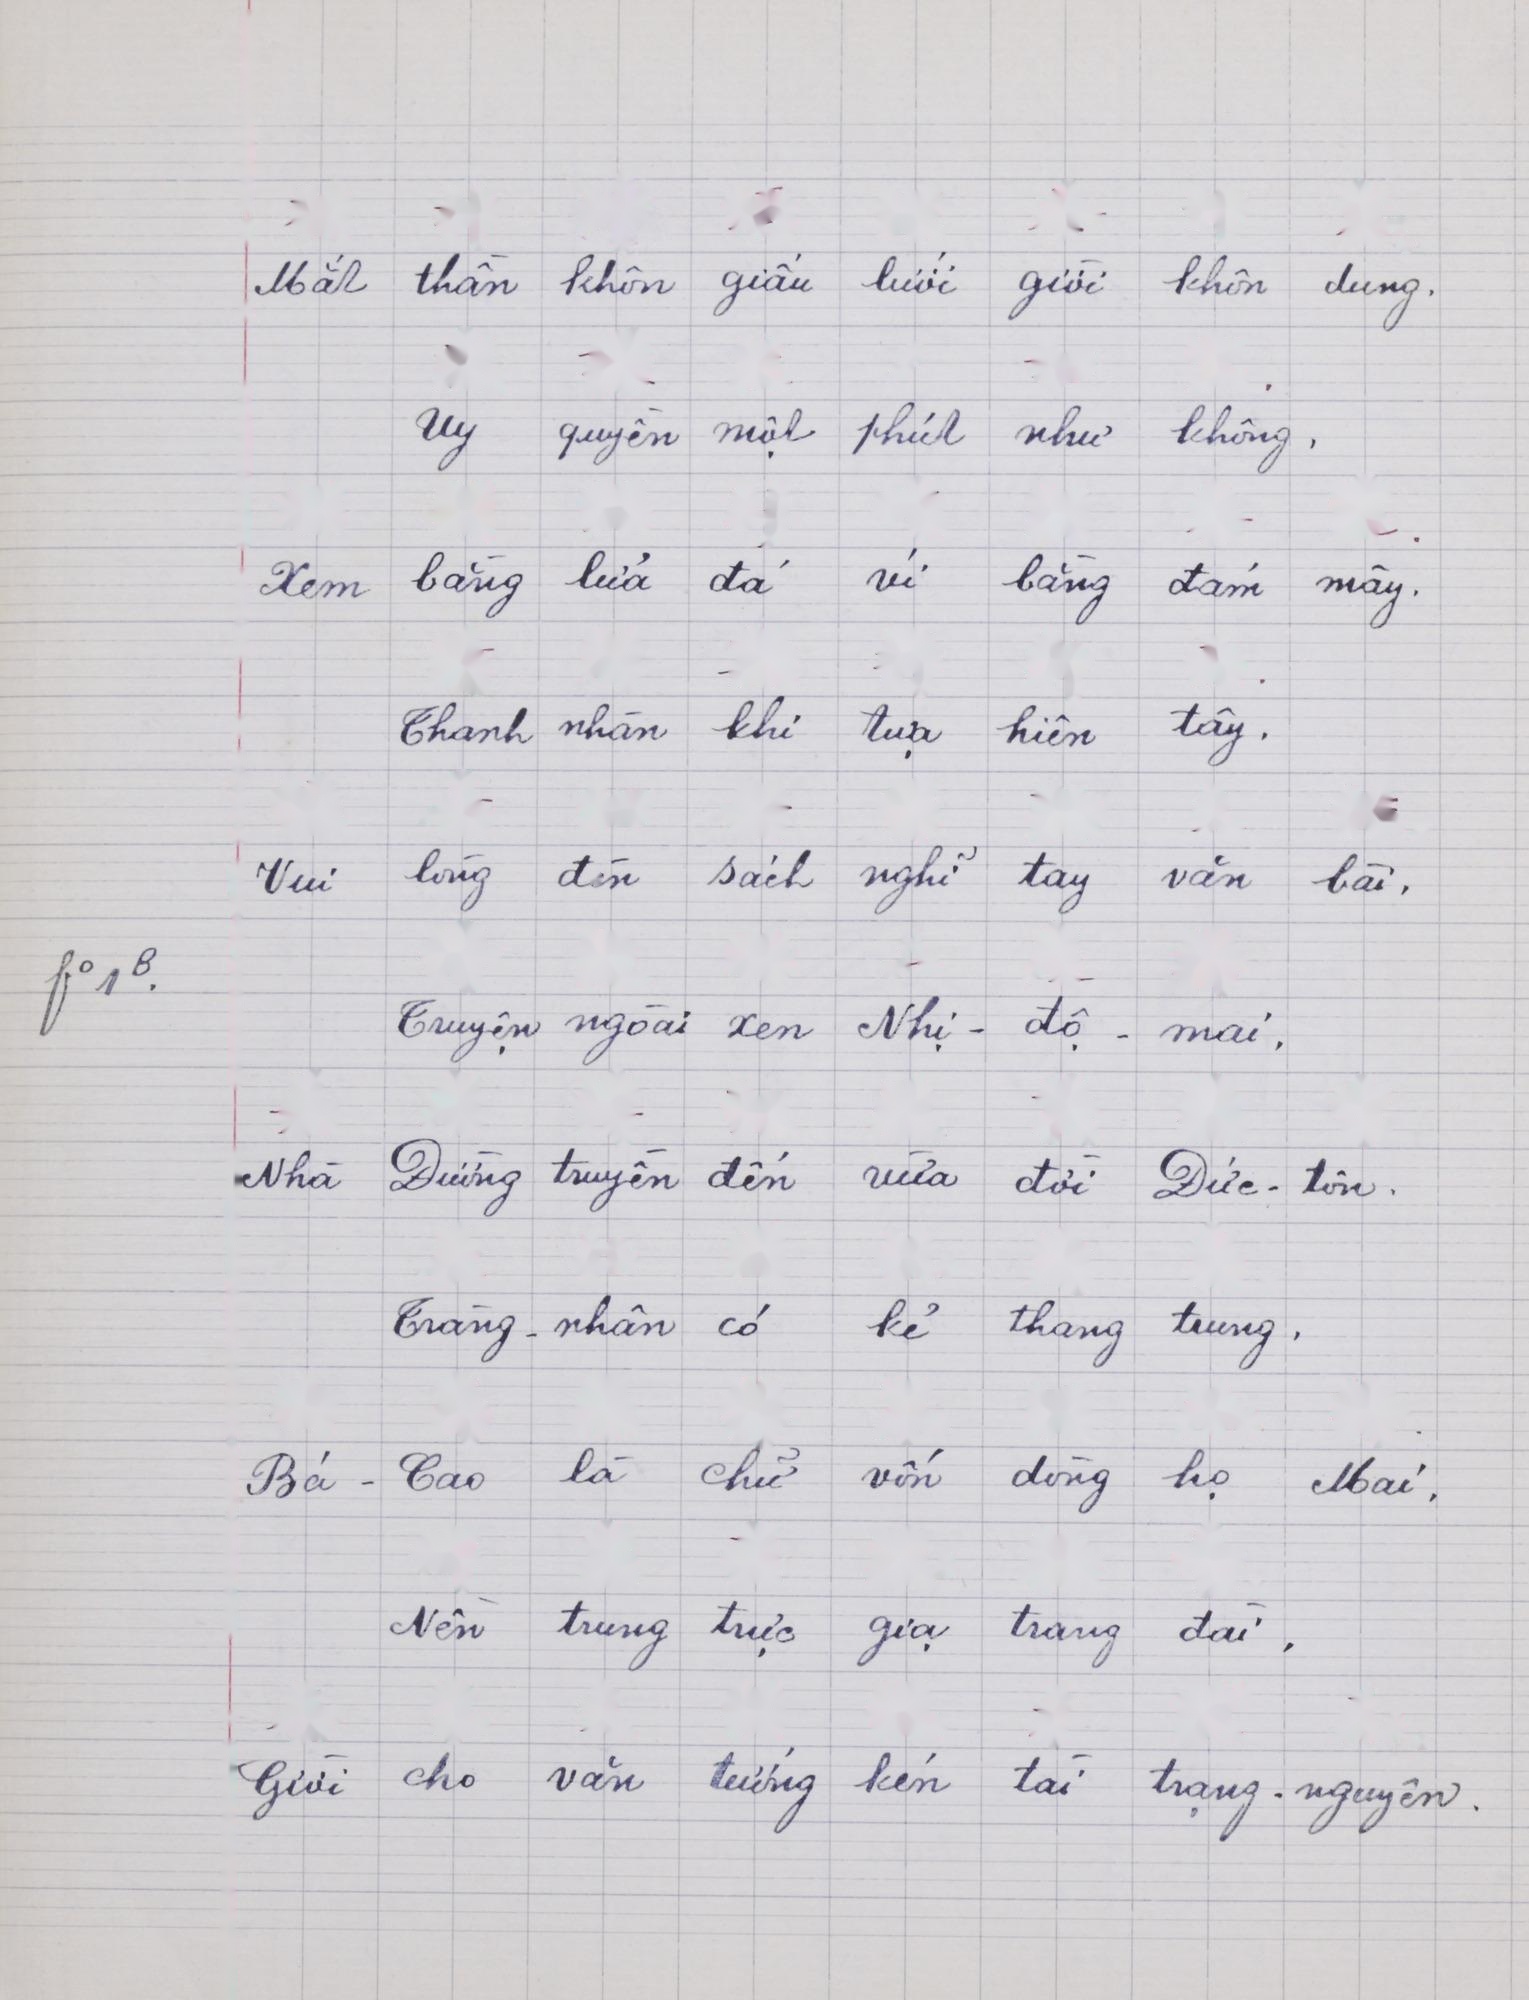 Mắt thần khôn giấu lưới giời khôn dung.
Uy quyền một phút như không.
Xem bằng lửa đá ví bằng đám mây.
Thanh nhàn khi tựa hiên tây.
Vui lòng đèn sách nghỉ tay văn bài.
f° 1 B.
Truyện ngoài xen Nhị-độ-mai.
Nhà Đường truyền đến vừa đời Đức-tôn.
Tràng-nhân có kẻ thang trung.
Bá-Cao là chữ vốn dòng họ Mai.
Nền trung trực giạ trang đài.
Giời cho văn tướng kén tài trạng-nguyên.